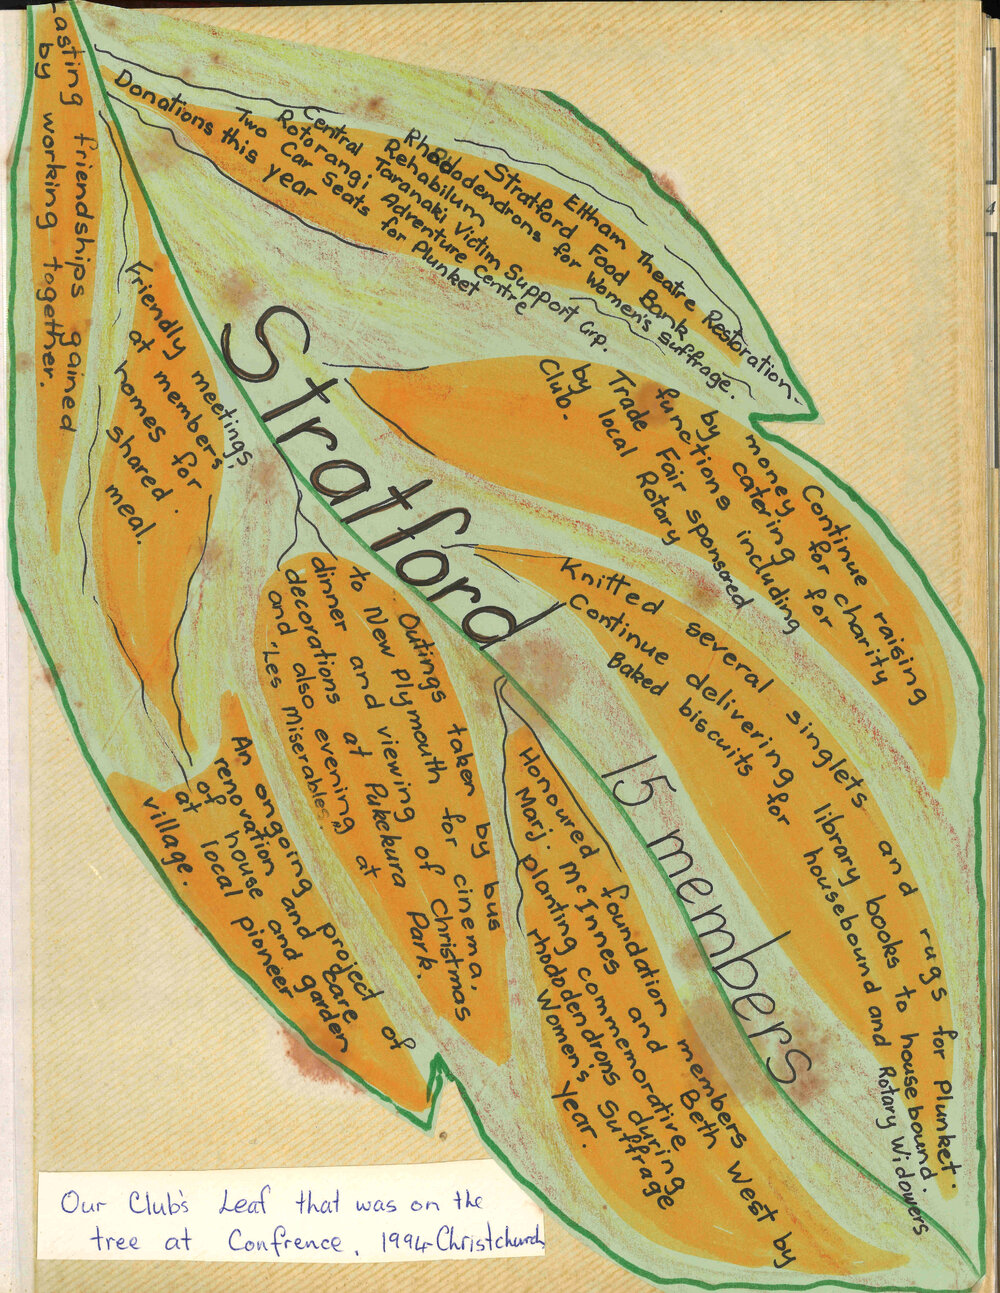 Lasting friendships gained
by working together.
Donations this year
Two Car Seats for Plunket
Rotorangi Adventure Centre
Central Taranaki Victim Support Grp.
Rehabilum
Rhododendrons for Women's Suffrage.
Stratford Food Bank
Eltham Theatre Restoration.
Friendly meetings,
at members
homes for
shared.
meal.
Stratford
15 members
Continue raising
money for charity
by catering for
functions including
Trade Fair sponsored
by local Rotary
Club.
Knitted several singlets and rugs for Plunket.
Continue delivering library books to housebound.
Baked biscuits for housebound and Rotary Widowers
Outings taken by bus
to New Plymouth for cinema,
dinner and viewing of Christmas
decorations at Pukekura Park.
and also evening at
'Les Miserables.'
An ongoing project of
renovation and care
of house and garden
at local pioneer
village.
Honoured foundation members
Marj. McInnes and Beth West by
planting commemorative
rhododendrons during
Women's Suffrage
Year.
Our Club's Leaf that was on the
tree at Confrence. 1994 Christchurch